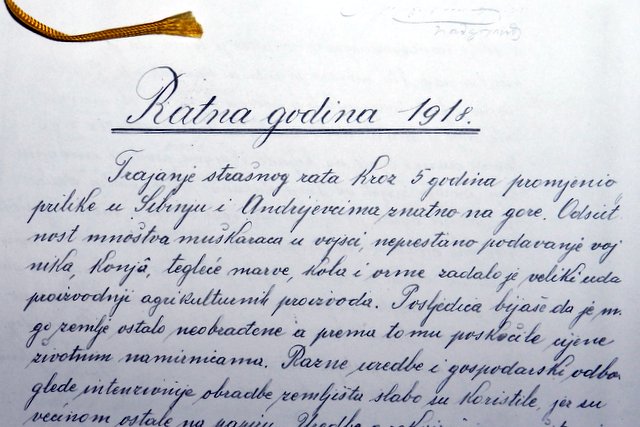 Ratna godina 1918.
Trajanje strašnog rata kroz 5 godina promjenio
prilike u Sibinju i Andrijevcima znatno na gore. Odsut
nost mnoštva muškaraca u vojsci, neprestano podavanje voj
nika, konjâ, tegleće marve, kola i orme zadalo je veliki uda
proizvodnji agrikulturnih proizvoda. Posljedica bijaše da je m.
go zemlje ostalo neobrađene a prema tomu poskočile cijene
životnim namirnicama. Razne uredbe i gospodarski odbo
glede intenzivnije obradbe zemljišta slabo su koristile, jer su
većinom ostale na papiru. Uredba